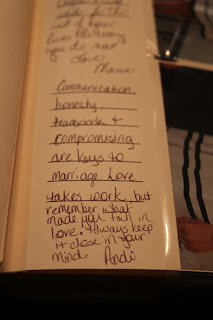 you do now
Love,
Mama
Communication,
honesty,
teamwork &
compromising
are keys to
marriage. Love
takes work, but
remember what
made you fall in
love. Always keep
it close in your
mind. Andi